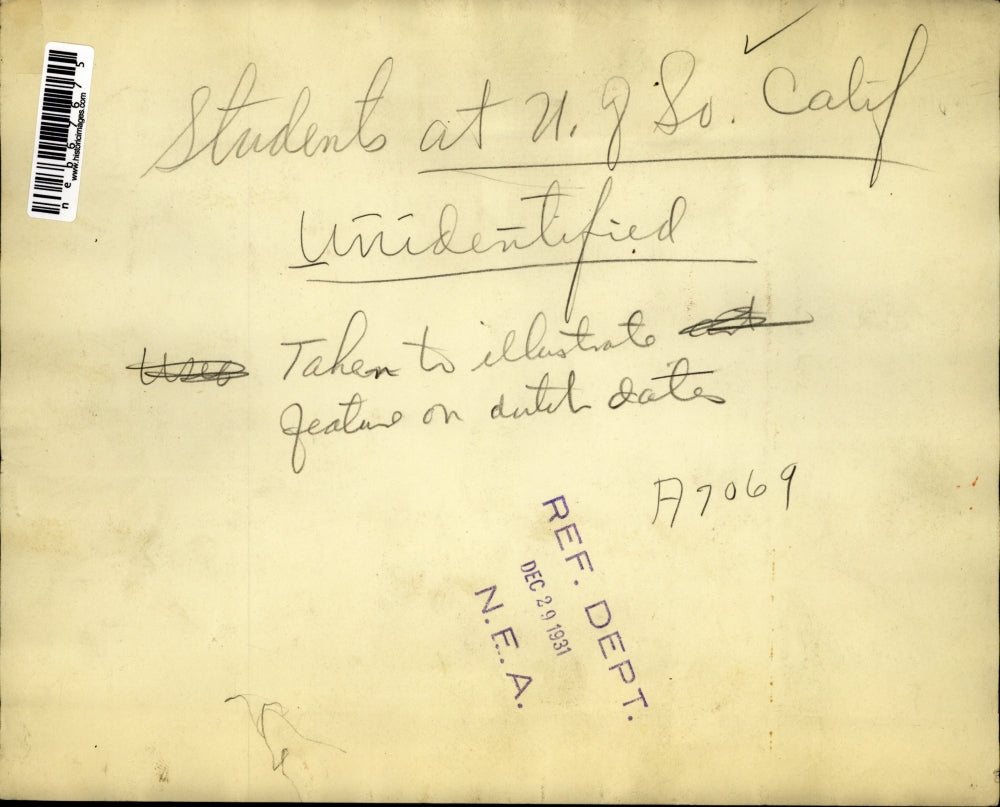 Students at U. of So. Calif
Unidentified
Used Taken to illustrate
feature on dutch dates
A7069
REF. DEPT.
DEC 29 1931
N.E.A.
neb67675
www.historicimages.com